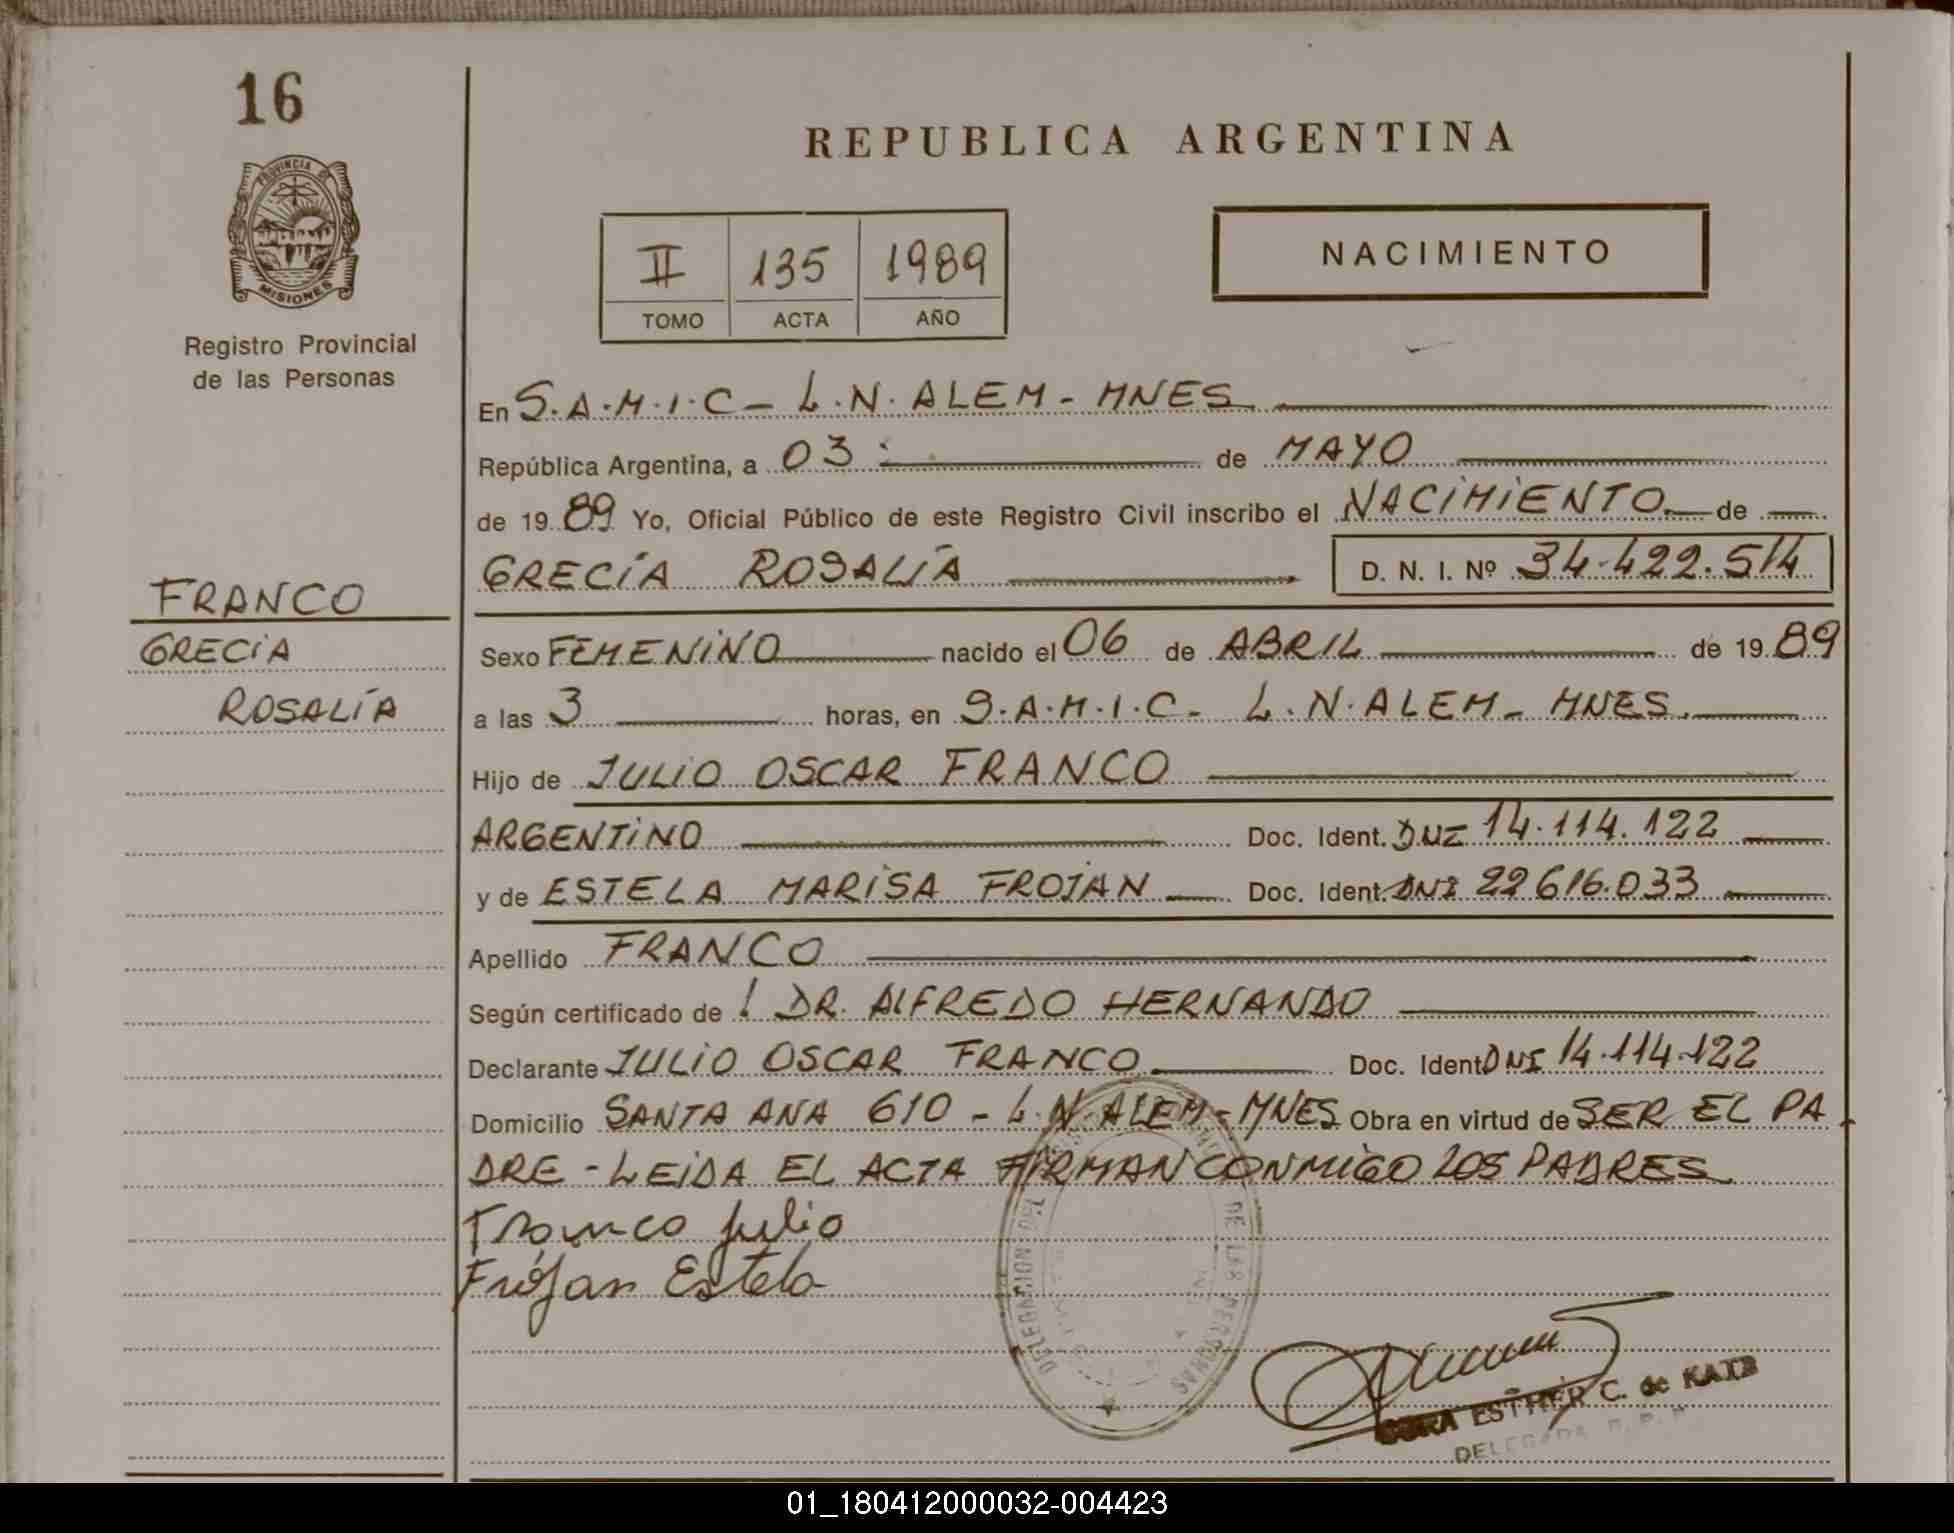 16
PROVINCIA DE
MISIONES
Registro Provincial
de las Personas
FRANCO
GRECIA
ROSALÍA
REPUBLICA ARGENTINA
II 135 1989
TOMO ACTA AÑO
NACIMIENTO
En S.A.M.I.C - L.N. ALEM - MNES
República Argentina, a 03 de MAYO
de 1989 Yo, Oficial Público de este Registro Civil inscribo el NACIMIENTO de
GRECÍA ROSALÍA D. N. I. Nº 34.422.514
Sexo FEMENINO nacido el 06 de ABRIL de 1989
a las 3 horas, en S.A.M.I.C - L.N. ALEM - MNES.
Hijo de JULIO OSCAR FRANCO
ARGENTINO Doc. Ident. DNI 14.114.122
y de ESTELA MARISA FROJAN Doc. Ident. DNI 22616.033
Apellido FRANCO
Según certificado de ! DR. ALFREDO HERNANDO
Declarante JULIO OSCAR FRANCO Doc. Ident DNI 14.114.122
Domicilio SANTA ANA 610 - L.N. ALEM - MNES Obra en virtud de SER EL PA
DRE - LEIDA EL ACTA FIRMAN CONMIGO LOS PADRES.
Franco Julio
Frojan Estela
DELEGACION DEL DE LAS PERSONAS
ESTHER C. de KATZ
DELEGADA
01_180412000032-004423